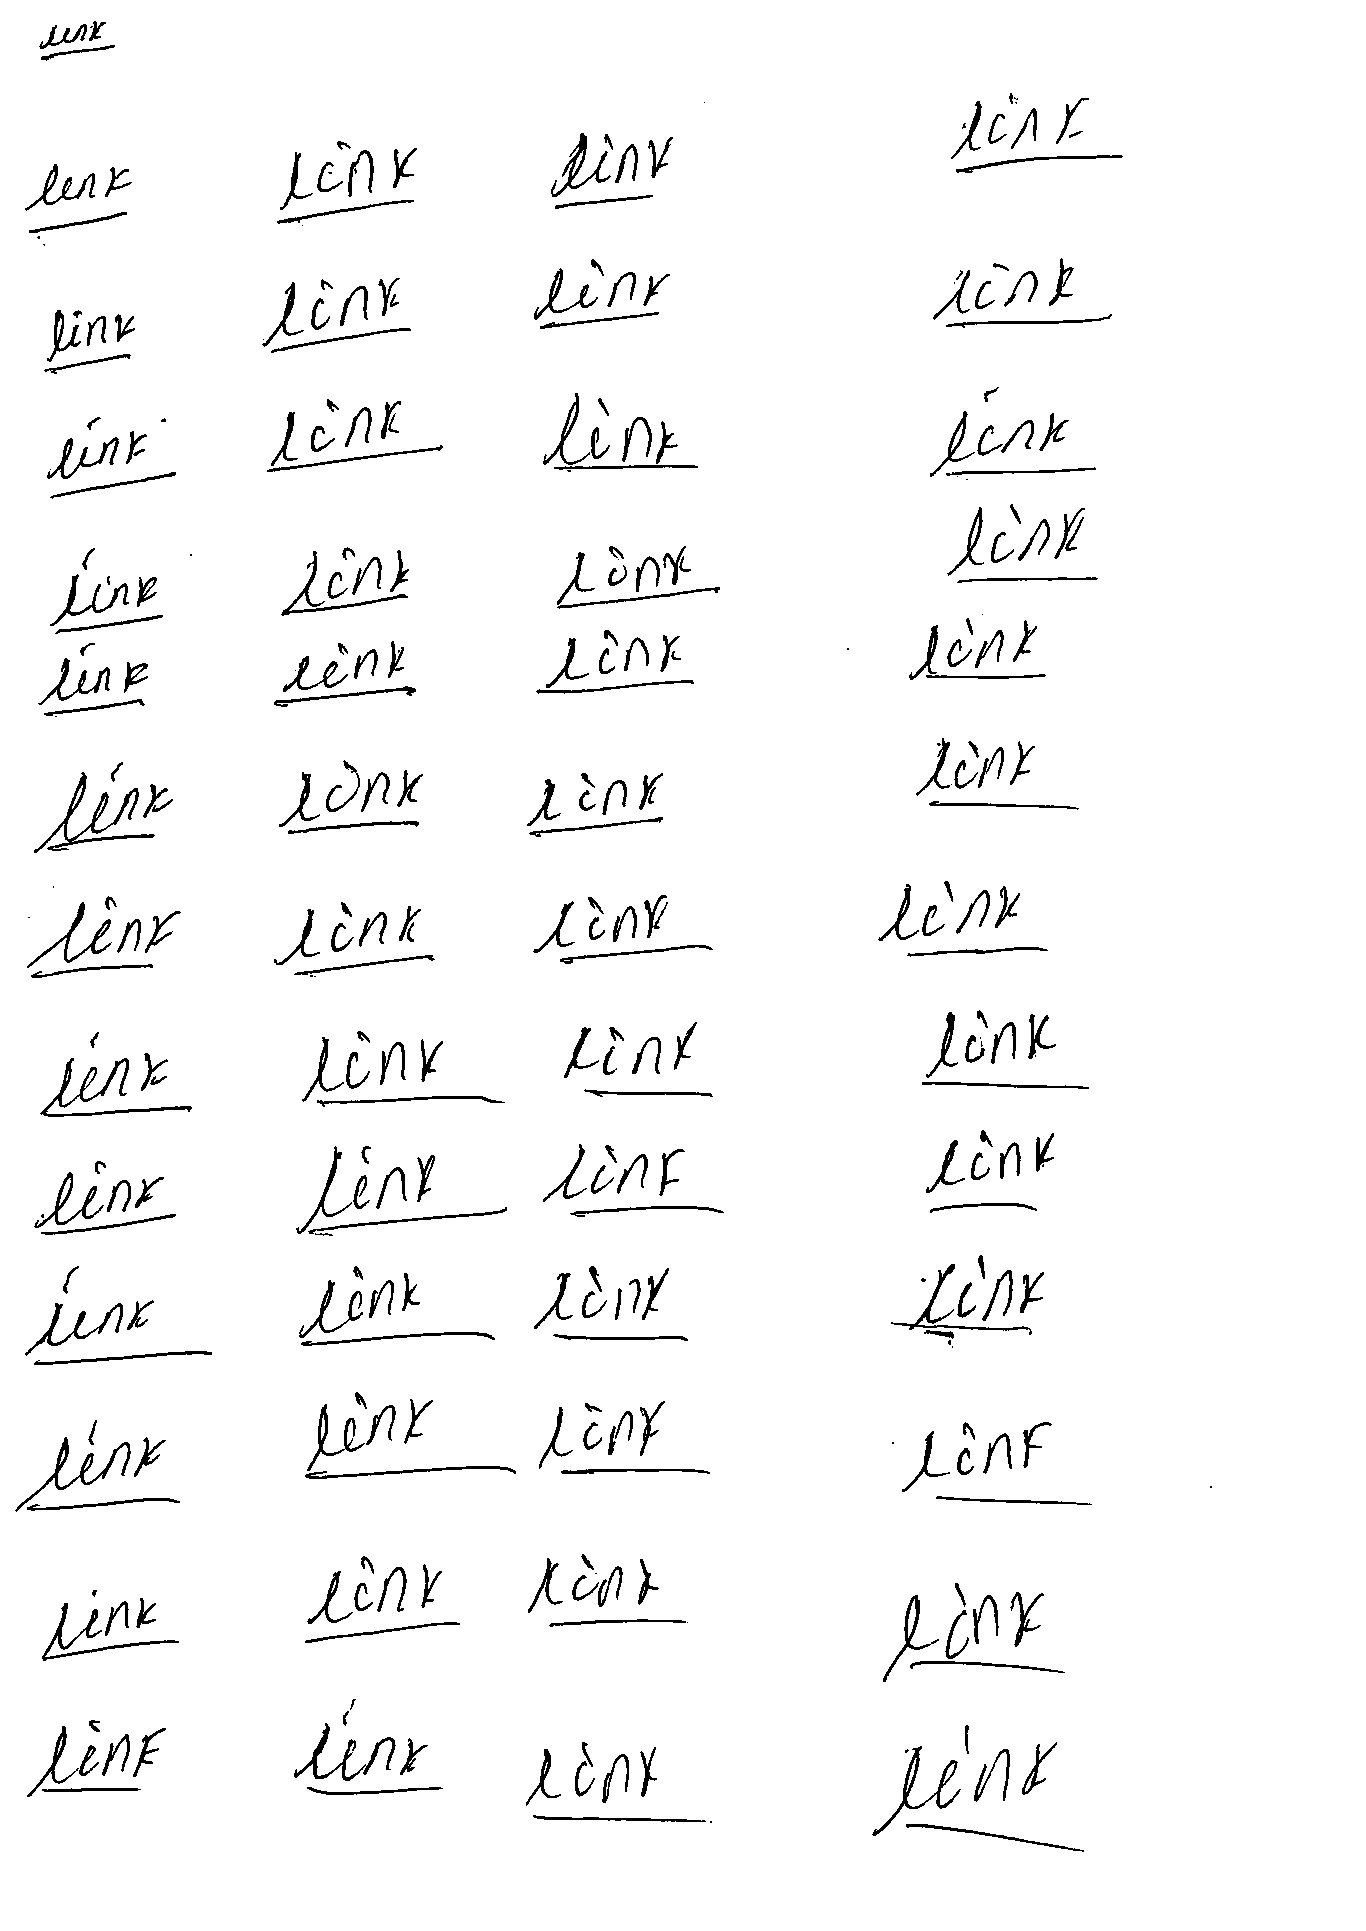 link
link link link link
link link link link
link link link link
link link link link
link link link link
link link link link
link link link link
link link link link
link link link link
link link link link
link link link link
link link link link
link link link link